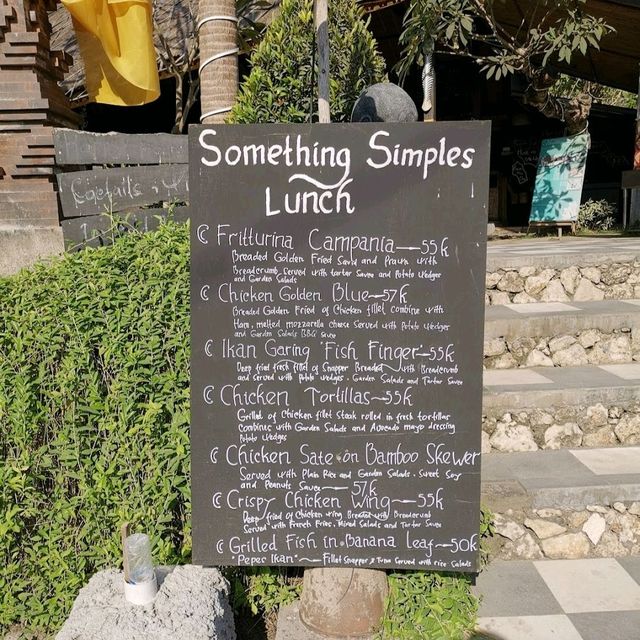 Something Simples
Lunch
Fritturina Campania — 55k
Breaded Golden Fried and Prawn with
Breadcrumb, Served with tartar Sauce and Potato Wedges
and Garden Salads
Chicken Golden Blue — 57k
Breaded Golden Fried of Chicken fillet combine with
Ham, melted mozzarella cheese Served with Potato Wedges
and Garden Salads BBQ Sauce
Ikan Garing Fish Finger — 55k
Deep fried fresh fillet of Snapper Breaded with Breadcrumb
and served with Potato Wedges. Garden Salads and Tartar Sauce
Chicken Tortillas — 55k
Grilled of Chicken fillet Steak rolled in fresh tortillas
Combine with Garden Salads and Avocado mayo dressing
Potato Wedges
Chicken Sate on Bamboo Skewer
Served with Plain Rice and Garden Salads. Sweet Soy
and Peanuts Sauce — 57k
Crispy Chicken Wing — 55k
Deep fried of Chicken wing Breaded with Breadcrumb
Served with French Fries, Mixed Salads and Tartar Sauce
Grilled Fish in Banana Leaf — 50k
"Pepes Ikan" — Fillet Snapper & Tuna Served with rice Salads
Cocktails